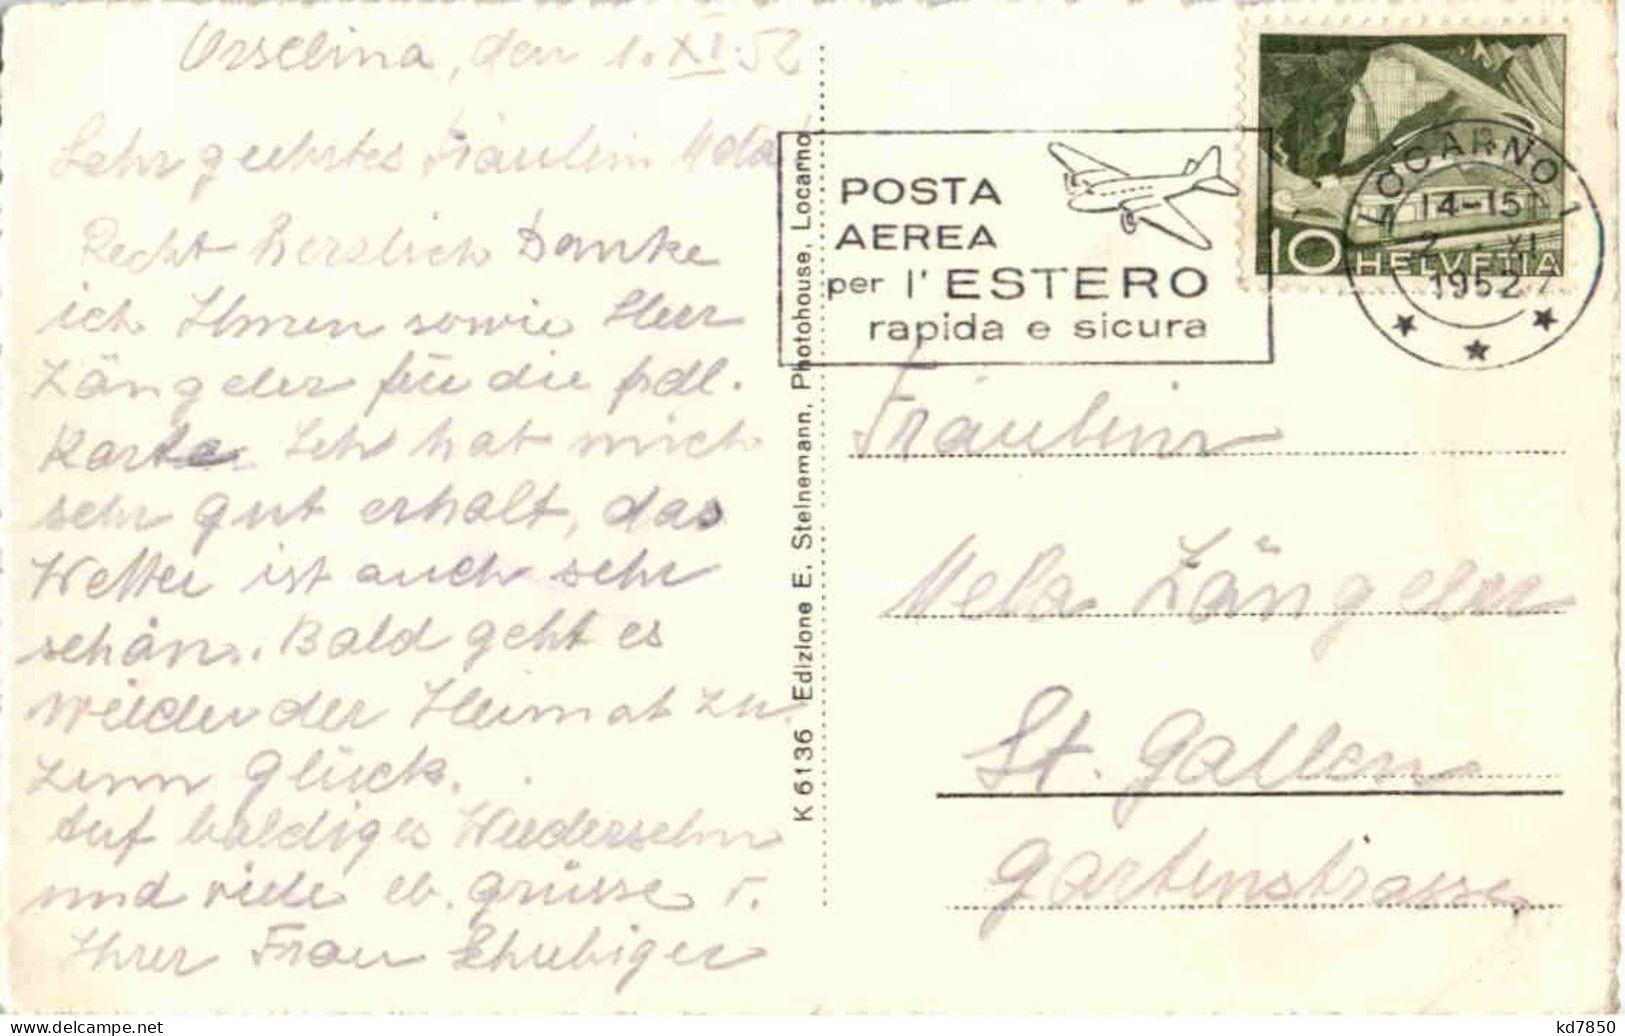 Orselina, den 1. XI. 52
Sehr geehrtes Fräulein
Recht Herzlich Danke
ich Ihnen sowie Herr
Längeler für die frdl.
Karte. Ich hat mich
sehr gut erholt, das
Wetter ist auch sehr
schön. Bald geht es
wieder der Heimat zu.
zum Glück.
Auf baldiges Wiedersehn
und viele Grüsse v.
Ihrer Frau Schubiger
K 6136 Edizione E. Steinemann, Photohouse, Locarno
POSTA
AEREA
per l'ESTERO
rapida e sicura
LOCARNO 1
14-15
2. XI.
1952
10 HELVETIA
Fräulein
Längeler
St. Gallen
Gartenstrasse
kd7850